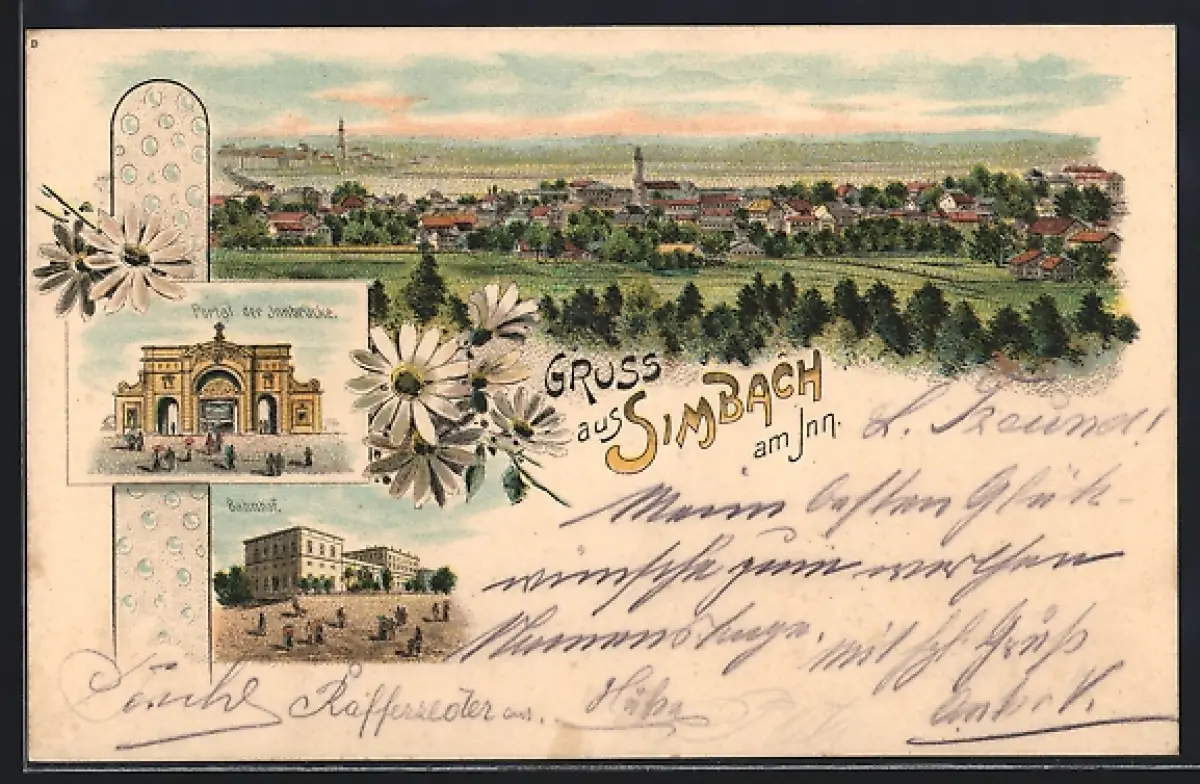 D
Portal der Innbrücke.
Bahnhof.
GRUSS
aus SIMBACH
am Inn.
L. Freund!
Meine besten Glück-
wünsche zum werthen
Namenstage. mit hzl. Gruß
Rafferseder